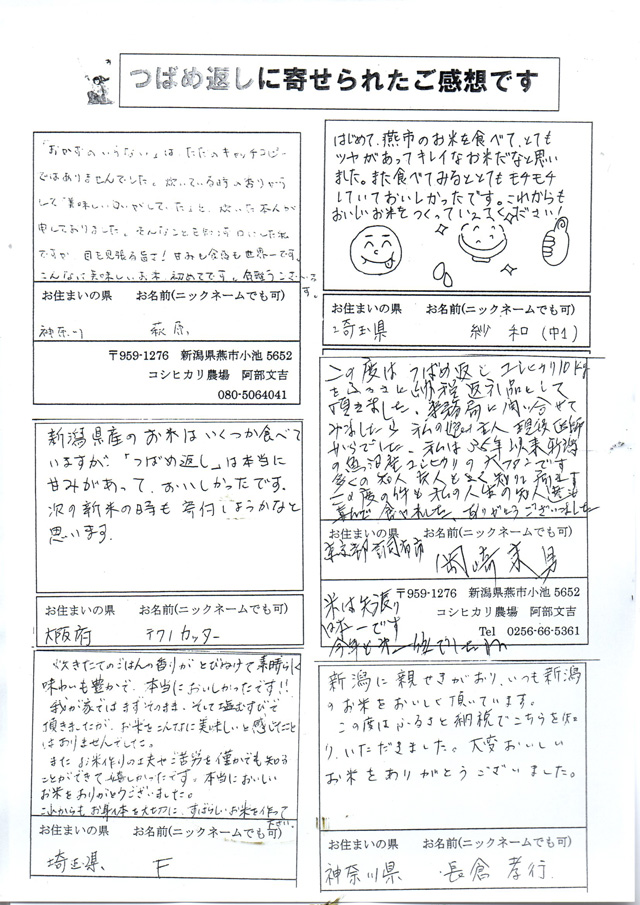 つばめ返しに寄せられたご感想です
「おかずのいらない」は、ただのキャッチコピー
ではありませんでした。炊いている時の香りから
して「美味しい匂いがしていた」と、炊いた本人が
申しておりました。そんなことも
ですが、目を見張る旨さ!甘みも食感も世界一です。
こんなに美味しいお米、初めてです。有難うございます。
お住まいの県 お名前(ニックネームでも可)
神奈川 萩原
〒959-1276 新潟県燕市小池 5652
コシヒカリ農場 阿部文吉
080-5064041
新潟県産のお米はいくつか食べて
いますが、「つばめ返し」は本当に
甘みがあって、おいしかったです。
次の新米の時も寄付しようかなと
思います。
お住まいの県 お名前(ニックネームでも可)
大阪府 テクノカッター
炊きたてのごはんの香りがとびぬけて素晴らしく
味わいも豊かで、本当においしかったです!!
我が家ではまずそのまま、そして塩むすびで
頂きましたが、お米をこんなに美味しいと感じたこと
はありませんでした。
またお米作りの工夫やご苦労を僅かでも知る
ことができて嬉しかったです。本当においしい
お米をありがとうございました。
これからもお身体を大切に、すばらしいお米を作って
ださい。
お住まいの県 お名前(ニックネームでも可)
埼玉県 F
はじめて、燕市のお米を食べて、とても
ツヤがあってキレイなお米だなと思い
ました。また食べてみるととてもモチモチ
していておいしかったです。これからも
おいしいお米をつくっていってください!
お住まいの県 お名前(ニックネームでも可)
埼玉県 紗和(中1)
この度はつばめ返しコシヒカリ10kg
をふるさと納税返礼品として
頂きました。事務局に問い合せて
みましたら私の
からでした。私は35年以来新潟
の魚沼産コシヒカリの大ファンです
多くの知人友人と
この度の件も私の人生の知人
喜んで食べました。ありがとうございました
お住まいの県 お名前(ニックネームでも可)
東京都 調布市 岡崎
米は矢張り
味一です
今年も米一
〒959-1276 新潟県燕市小池 5652
コシヒカリ農場 阿部文吉
Tel 0256-66-5361
新潟に親せきがおり、いつも新潟
のお米をおいしく頂いています。
この度はふるさと納税でこちらを知
り、いただきました。大変おいしい
お米をありがとうございました。
お住まいの県 お名前(ニックネームでも可)
神奈川県 長倉孝行